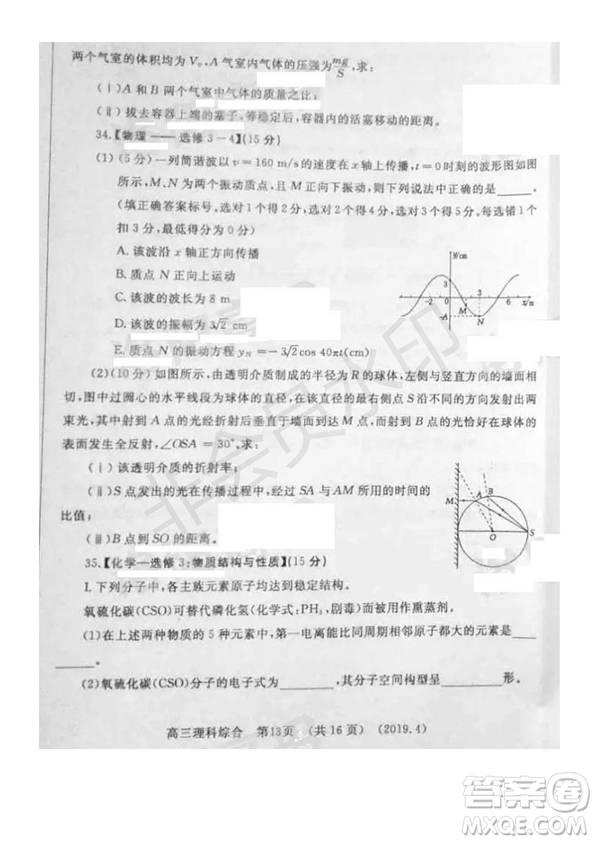 两个气室的体积均为 V₀,A 气室内气体的压强为mg/S,求:
(ⅰ)A 和 B 两个气室中气体的质量之比;
(ⅱ)拔去容器上端的塞子,等稳定后,容器内的活塞移动的距离。
34.【物理——选修 3-4】(15 分)
(1)(5 分)一列简谐波以 v=160 m/s 的速度在 x 轴上传播,t=0 时刻的波形图如图
所示,M、N 为两个振动质点,且 M 正向下振动,则下列说法中正确的是______。
(填正确答案标号。选对 1 个得 2 分,选对 2 个得 4 分,选对 3 个得 5 分。每选错 1 个
扣 3 分,最低得分为 0 分)
A. 该波沿 x 轴正方向传播
B. 质点 N 正向上运动
C. 该波的波长为 8 m
D. 该波的振幅为 3√2 cm
E. 质点 N 的振动方程 yN=-3√2cos 40πt(cm)
y/cm
-2 0 3 6 x/m
M
-A
N
(2)(10 分)如图所示,由透明介质制成的半径为 R 的球体,左侧与竖直方向的墙面相
切,图中过圆心的水平线段为球体的直径,在该直径的最右侧点 S 沿不同的方向发射出两
束光,其中射到 A 点的光经折射后垂直于墙面到达 M 点,而射到 B 点的光恰好在球体的
表面发生全反射,∠OSA=30°。求:
(ⅰ)该透明介质的折射率;
(ⅱ)S 点发出的光在传播过程中,经过 SA 与 AM 所用的时间的
比值;
(ⅲ)B 点到 SO 的距离。
M A B
O S
35.【化学—选修 3:物质结构与性质】(15 分)
Ⅰ. 下列分子中,各主族元素原子均达到稳定结构。
氧硫化碳(CSO)可替代磷化氢(化学式:PH₃,剧毒)而被用作熏蒸剂。
(1)在上述两种物质的 5 种元素中,第一电离能比同周期相邻原子都大的元素是___
______。
(2)氧硫化碳(CSO)分子的电子式为________,其分子空间构型呈________。
高三理科综合 第13页 (共 16 页) (2019.4)
非会员水印
答案圈
MXQE.COM